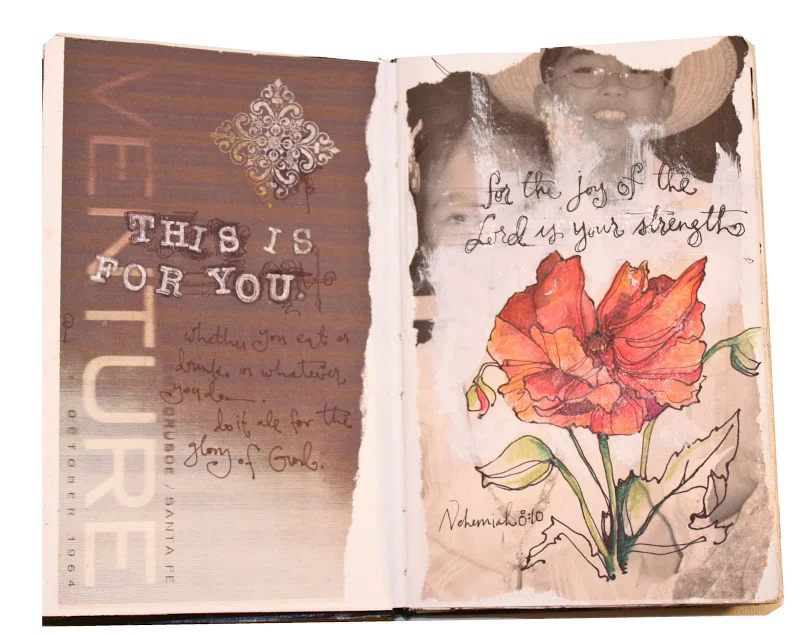 VENTURE
OCTOBER 1964
THIS IS
FOR YOU.
whether you eat or
drink, or whatever
you do
do it all for the
glory of God.
/ SANTA FE
for the joy of the
Lord is your strength
Nehemiah 8:10